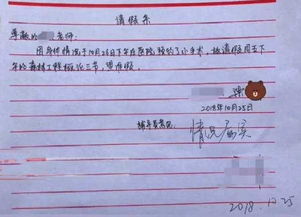 请假条
尊敬的 老师:
因身体情况于10月26日下午在医院预约了小手术,故请假周五下
午的森林工程概论三节,望准假。
2018年10月25日
辅导员意见:
情况属实
2018.10.25